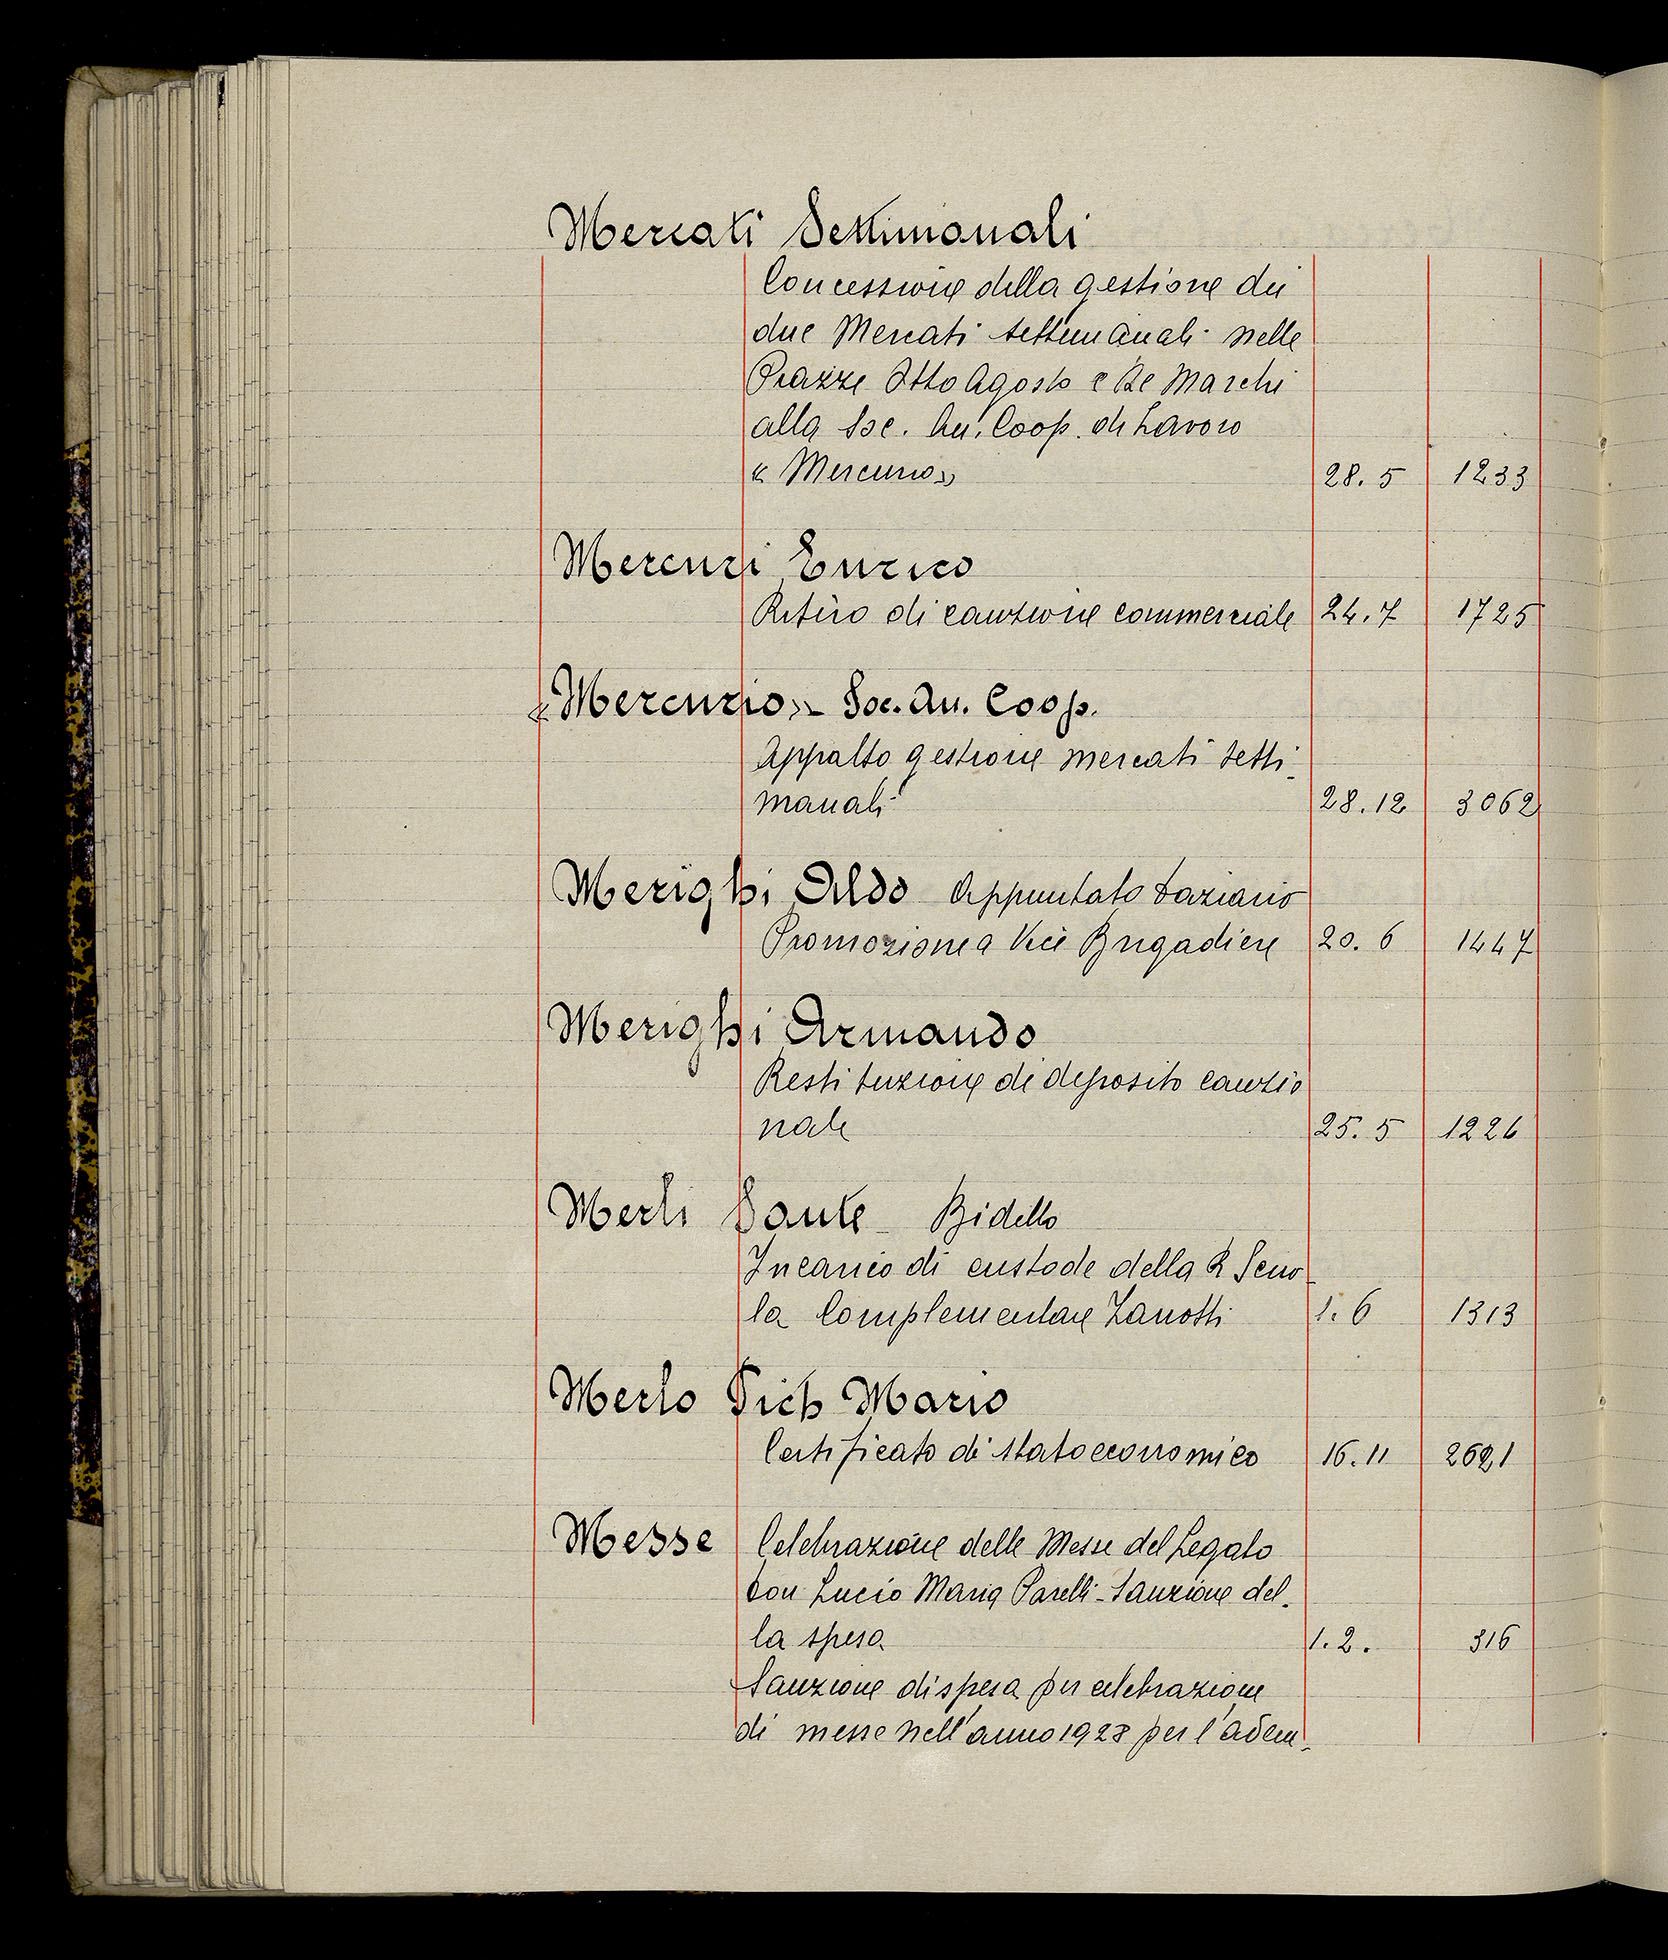 Mercati Settimanali
Concessione della gestione dei
due Mercati settimanali nelle
Piazze Otto Agosto e De Marchi
alla Soc. An. Coop. di Lavoro
« Mercurio » 28. 5 1233
Mercuri Enrico
Ritiro di cauzione commerciale 24. 7 1725
« Mercurio » - Soc. An. Coop.
Appalto gestione mercati setti-
manali 28. 12 3062
Merighi Aldo Appuntato Daziario
Promozione a Vice Brigadiere 20. 6 1447
Merighi Armando
Restituzione di deposito cauzio
nale 25. 5 1226
Merli Dante - Bidello
Incarico di custode della R Scuo-
la Complementare Zanotti 1. 6 1313
Merlo Pich Mario
Certificato di stato economico 16. 11 2621
Messe Celebrazione delle Messe del Legato
Don Lucio Maria Parelli - Sanzione del-
la spesa 1. 2. 316
Sanzione di spesa per celebrazione
di messe nell'anno 1928 per l'adem-